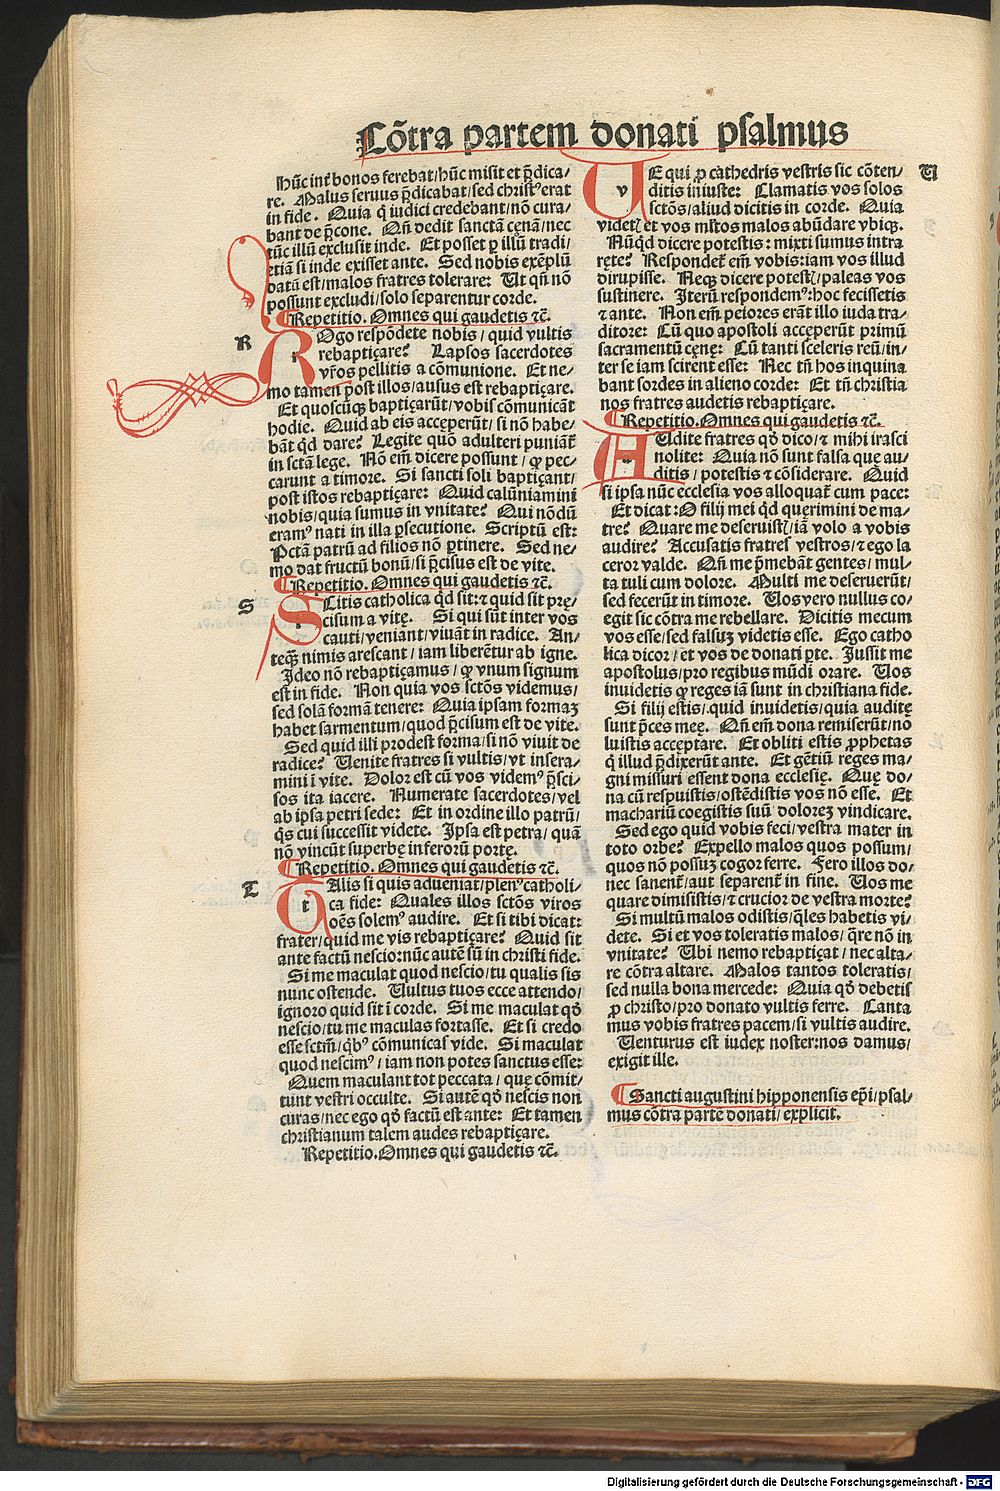 Cõtra partem donati psalmus
hũc int̃ bonos ferebat/hũc misit et p̃dica/
re. Malus seruus p̃dicabat/sed christꝰ erat
in fide. Quia q̃ iudici credebant/nõ cura/
bant de p̃cone. Qñ dedit sanctã cęnã/nec
tũc illũ exclusit inde. Et posset ꝑ illũ tradi/
etiã si inde exisset ante. Sed nobis exẽplũ
datũ est/malos fratres tolerare: Ut qñ nõ
possunt excludi/solo separentur corde.
Repetitio. Omnes qui gaudetis ⁊c̃.
R
ROgo respõdete nobis/quid vultis
rebaptiçare? Lapsos sacerdotes
vr̃os pellitis a cõmunione. Et ne/
mo tamen post illos/ausus est rebaptiçare.
Et quoscũqꝫ baptiçarũt/vobis cõmunicãt
hodie. Quid ab eis acceperũt/si nõ habe/
bãt qd̃ dare? Legite quõ adulteri puniãt̃
in sctã lege. Nõ em̃ dicere possunt/ꝙ pec/
carunt a timore. Si sancti soli baptiçant/
post istos rebaptiçare: Quid calũniamini
nobis/quia sumus in vnitate? Qui nõdũ
eramꝰ nati in illa ꝑsecutione. Scriptũ est:
Pctã patrũ ad filios nõ ꝑtinere. Sed ne/
mo dat fructũ bonũ/si p̃cisus est de vite.
Repetitio. Omnes qui gaudetis ⁊c̃.
S
SCitis catholica qd̃ sit:⁊ quid sit prę/
cisum a vitę. Si qui sũt inter vos
cauti/veniant/viuãt in radice. An/
teqꝫ nimis arescant/iam liberẽtur ab igne.
Ideo nõ rebaptiçamus/ꝙ vnum signum
est in fide. Non quia vos sctõs videmus/
sed solã formã tenere: Quia ipsam formaꝫ
habet sarmentum/quod p̃cisum est de vite.
Sed quid illi prodest forma/si nõ viuit de
radice? Uenite fratres si vultis/vt insera/
mini ĩ vite. Dolor est cũ vos videmꝰ p̃sci/
sos ita iacere. Numerate sacerdotes/vel
ab ipsa petri sede: Et in ordine illo patrũ/
q̃s cui successit videte. Ipsa est petra/quã
nõ vincũt superbę inferorũ portę.
Repetitio. Omnes qui gaudetis ⁊c̃.
T
TAlis si quis adueniat/plenꝰ catholi/
ca fide: Quales illos sctõs viros
oẽs solemꝰ audire. Et si tibi dicat:
frater/quid me vis rebaptiçare? Quid sit
ante factũ nescio:nũc autẽ sũ in christi fide.
Si me maculat quod nescio/tu qualis sis
nunc ostende. Uultus tuos ecce attendo/
ignoro quid sit ĩ corde. Si me maculat qđ
nescio/tu me maculas fortasse. Et si credo
esse sctm̃/qbꝰ cõmunicas vide. Si maculat
quod nescimꝰ/iam non potes sanctus esse:
Quem maculant tot peccata/quę cõmit/
tunt vestri occulte. Si autẽ qđ nescis non
curas/nec ego qđ factũ est ante: Et tamen
christianum talem audes rebaptiçare.
Repetitio. Omnes qui gaudetis ⁊c̃.
U
UE qui ꝓ cathedris vestris sic cõten/
ditis iniuste: Clamatis vos solos
sctõs/aliud dicitis in corde. Quia
videt̃ et vos mĩstos malos abũdare vbiqꝫ.
Nũqd dicere potestis: mixti sumus intra
ręte? Respondet̃ em̃ vobis:iam vos illud
dirupisse. Neqꝫ dicere potest̃/paleas vos
sustinere. Iterũ respondemꝰ:hoc fecissetis
⁊ ante. Non em̃ peiores erãt illo iuda tra/
ditore: Cũ quo apostoli acceperũt primũ
sacramentũ cęnę: Cũ tanti sceleris reũ/in/
ter se iam scirent esse: Nec tñ hos inquina
bant sordes in alieno corde: Et tñ christia
nos fratres audetis rebaptiçare.
Repetitio. Omnes qui gaudetis ⁊c̃.
AUdite fratres qđ dico/⁊ mihi irasci
nolite: Quia nõ sunt falsa que au/
ditis/potestis ⁊ cõsiderare. Quid
si ipsa nũc ecclesia vos alloquat̃ cum pace:
Et dicat:O filij mei qd̃ querimini de ma/
tre? Quare me deseruist̃/iã volo a vobis
audire? Accusatis fratres vestros/⁊ ego la
ceror valde. Qñ me p̃mebãt gentes/mul/
ta tuli cum dolore. Multi me deseruerũt/
sed fecerũt in timore. Uos vero nullus co/
egit sic cõtra me rebellare. Dicitis mecum
vos esse/sed falsuꝫ videtis esse. Ego catho
lica dicor/et vos de donati ꝑte. Iussit me
apostolus/pro regibus mũdi orare. Uos
inuidetis ꝙ reges iã sunt in christiana fide.
Si filij estis/quid inuidetis/quia auditę
sunt p̃ces meę. Qñ em̃ dona remiserũt/no
luistis acceptare. Et obliti estis ꝓphetas
q̃ illud p̃dixerũt ante. Et gẽtiũ reges ma/
gni missuri essent dona ecclesię. Quę do/
na cũ respuistis/ostẽdistis vos nõ esse. Et
machariũ coegistis suũ doloreꝫ vindicare.
Sed ego quid vobis feci/vestra mater in
toto orbe? Expello malos quos possum/
quos nõ possuꝫ cogor ferre. Fero illos do/
nec sanent̃/aut separent̃ in fine. Uos me
quare dimisistis/⁊ crucior de vestra morte?
Si multũ malos odistis/q̃les habetis vi/
dete. Si et vos toleratis malos/q̃re nõ in
vnitate? Ubi nemo rebaptiçat/nec alta/
re cõtra altare. Malos tantos toleratis/
sed nulla bona mercede: Quia qđ debetis
ꝓ christo/pro donato vultis ferre. Canta
mus vobis fratres pacem/si vultis audire.
Uenturus est iudex noster:nos damus/
exigit ille.
Sancti augustini hipponensis ep̃i/psal/
mus cõtra partẽ donati/explicit.
Digitalisierung gefördert durch die Deutsche Forschungsgemeinschaft - DFG